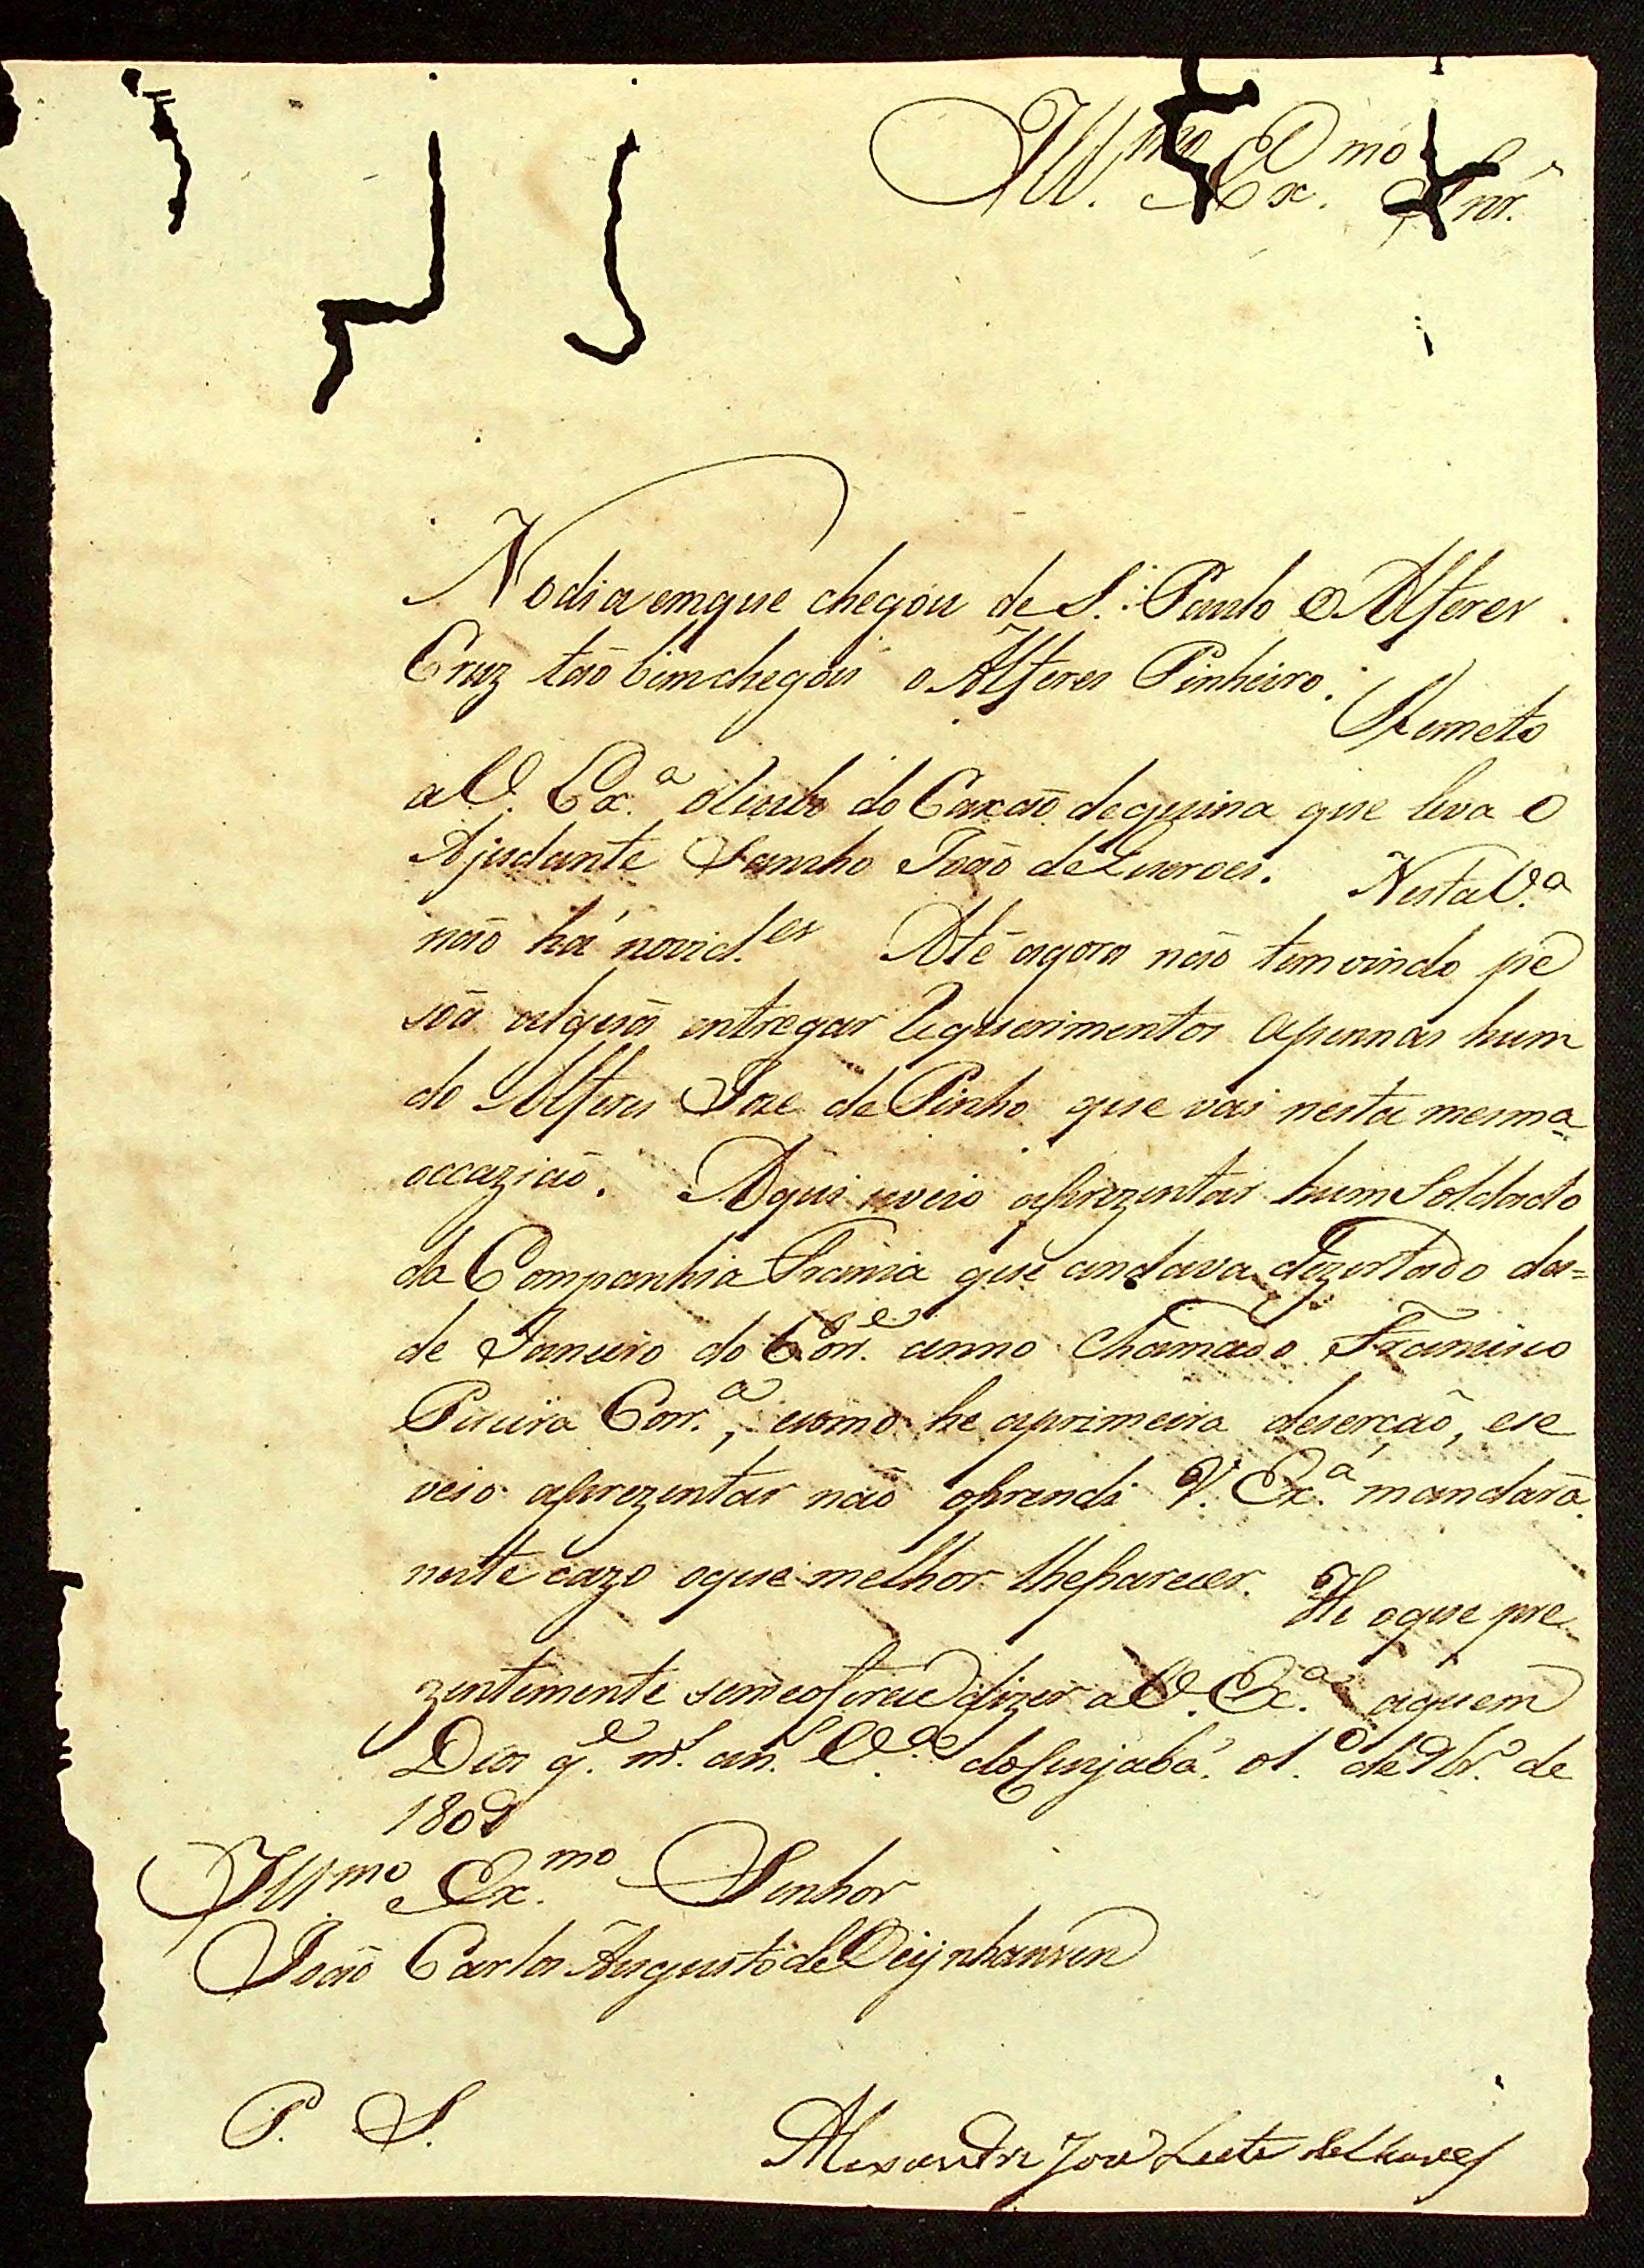 Ill.mo Ex.mo Snr.
No dia em que chegou de S. Paulo o Alferes
Cruz tão bem chegou o Alferes Pinheiro. Remeto
a V. Ex.a do Caxão de quina que leva o
Ajudante João de Queiroes. Nesta V.a
não há novid.es Até agora não tem vindo pe
soã alguã entregar Requerimentos apennas hum
do Alferes Joze de Pinho que vai nesta mesma
occazião. Aqui se veio aprezentar hum Soldado
da Companhia Franca que andava dezertado des=
de Janeiro do Corr.e anno chamado Francisco
Pereira Corr.a, e como he a primeira deserção, e se
veio aprezentar não o prendi V. Ex.a mandará
neste cazo o que melhor lhe parecer. He o que pre
zentemente se me oferece dizer a V. Ex.a a quem
Deos g.e m.s an.s V.a do Cuyabá. o 1.o de 9br.o de
1809
Ill.mo e Ex.mo Senhor
João Carlos Augusto de Oeijnhausen
P. S.
Alexandre Joze Leite de Chaves